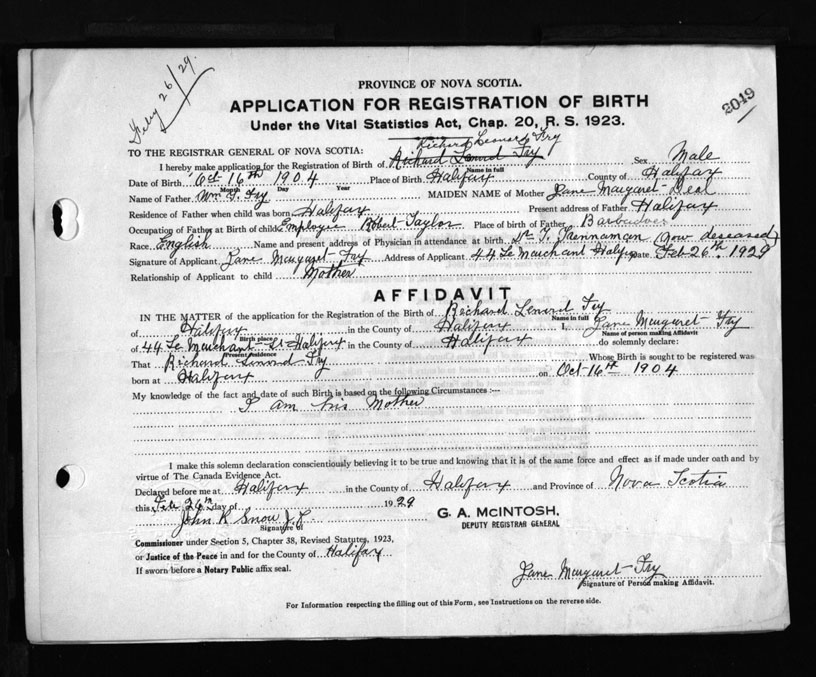 Feby 26/29.
PROVINCE OF NOVA SCOTIA.
2049
APPLICATION FOR REGISTRATION OF BIRTH
Under the Vital Statistics Act, Chap. 20, R. S. 1923.
Richard Leonard Fry
TO THE REGISTRAR GENERAL OF NOVA SCOTIA:
I hereby make application for the Registration of Birth of Richard Lenard Fry Sex Male
Name in full
Date of Birth Oct 16th 1904 Place of Birth Halifax County of Halifax
Month Day Year
Name of Father Wm T. Fry MAIDEN NAME of Mother Jane Margaret
Residence of Father when child was born Halifax Present address of Father Halifax
Occupation of Father at Birth of child Employee Robert Taylor Place of birth of Father Barbadoes
Race English Name and present address of Physician in attendance at birth Dr T. (now deseased)
Signature of Applicant Jane Margaret Fry Address of Applicant 44 Le Marchant Halifax Date Feb 26th. 1929
Relationship of Applicant to child Mother
AFFIDAVIT
IN THE MATTER of the application for the Registration of the Birth of Richard Lenard Fry
Name in full
of Halifax in the County of Halifax I, Jane Margaret Fry
Birth place Name of person making Affidavit
of 44 Le Marchant St Halifax in the County of Halifax do solemnly declare:
Present residence
That Richard Lenard Fry Whose Birth is sought to be registered was
born at Halifax on Oct 16th 1904
My knowledge of the fact and date of such Birth is based on the following Circumstances :—
I am his Mother
I make this solemn declaration conscientiously believing it to be true and knowing that it is of the same force and effect as if made under oath and by
virtue of The Canada Evidence Act.
Declared before me at Halifax in the County of Halifax and Province of Nova Scotia
this Feb 26th day of 1929
John R Snow J.P.
Signature of
G. A. McINTOSH,
DEPUTY REGISTRAR GENERAL
Commissioner under Section 5, Chapter 38, Revised Statutes, 1923,
or Justice of the Peace in and for the County of Halifax
If sworn before a Notary Public affix seal.
Jane Margaret Fry
Signature of Person making Affidavit.
For Information respecting the filling out of this Form, see Instructions on the reverse side.